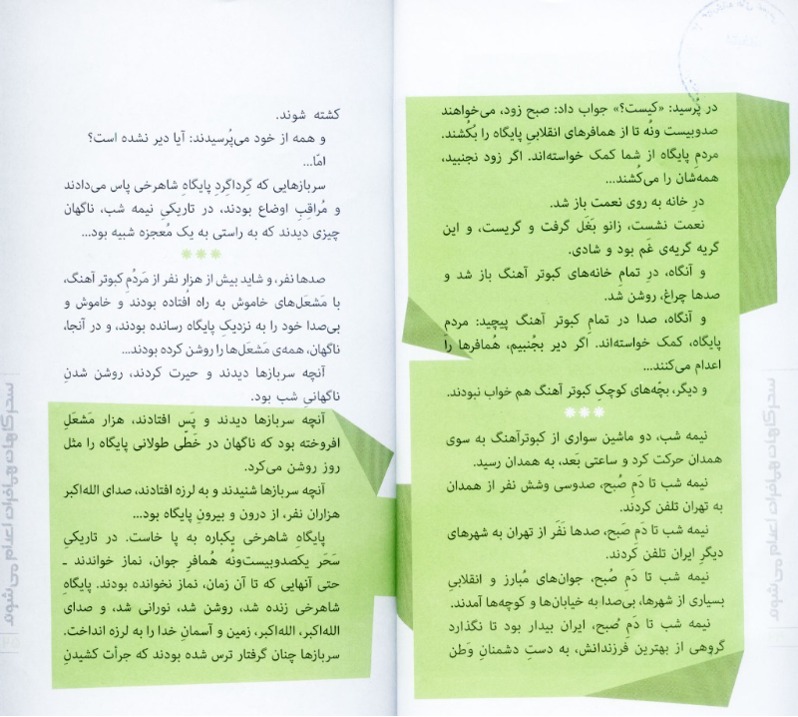 در پُرسید: «کیست؟» جواب داد: صبح زود، می‌خواهند
صدوبیست ونُه تا از همافرهای انقلابیِ پایگاه را بکُشند.
مردمِ پایگاه از شما کمک خواسته‌اند. اگر زود نجنبید،
همه‌شان را می‌کُشند...
درِ خانه به روی نعمت باز شد.
نعمت نشست، زانو بَغَل گرفت و گریست، و این
گریه گریه‌ی غَم بود و شادی.
و آنگاه، درِ تمامِ خانه‌های کبوتر آهنگ باز شد و
صدها چراغ، روشن شد.
و آنگاه، صدا در تمامِ کبوتر آهنگ پیچید: مردمِ
پایگاه، کمک خواسته‌اند. اگر دیر بجُنبیم، هُمافرها را
اعدام می‌کنند...
و دیگر، بچّه‌های کوچکِ کبوتر آهنگ هم خواب نبودند.
نیمه شب، دو ماشین سواری از کبوترآهنگ به سوی
همدان حرکت کرد و ساعتی بَعد، به همدان رسید.
نیمه شب تا دَمِ صُبح، صدوسی وشش نفر از همدان
به تهران تلفن کردند.
نیمه شب تا دَمِ صُبح، صدها نَفَر از تهران به شهرهای
دیگرِ ایران تلفن کردند.
نیمه شب تا دَمِ صُبح، جوان‌های مُبارز و انقلابیِ
بسیاری از شهرها، بی‌صدا به خیابان‌ها و کوچه‌ها آمدند.
نیمه شب تا دَمِ صُبح، ایران بیدار بود تا نگذارد
گروهی از بهترین فرزندانش، به دستِ دشمنانِ وَطن
سحرگاهان همافران اعدام می‌شوند
کشته شوند.
و همه از خود می‌پُرسیدند: آیا دیر نشده است؟
امّا...
سربازهایی که گِرداگِردِ پایگاهِ شاهرخی پاس می‌دادند
و مُراقبِ اوضاع بودند، در تاریکیِ نیمه شب، ناگهان
چیزی دیدند که به راستی به یک مُعجزه شبیه بود...
صدها نفر، و شاید بیش از هزار نفر از مَردُمِ کبوتر آهنگ،
با مَشعَل‌های خاموش به راه اُفتاده بودند و خاموش و
بی‌صدا خود را به نزدیکِ پایگاه رسانده بودند، و در آنجا،
ناگهان، همه‌ی مَشعَل‌ها را روشن کرده بودند...
آنچه سربازها دیدند و حیرت کردند، روشن شدنِ
ناگهانیِ شب بود.
آنچه سربازها دیدند و پَس افتادند، هزار مَشعَلِ
افروخته بود که ناگهان در خَطّی طولانی پایگاه را مثل
روز روشن می‌کرد.
آنچه سربازها شنیدند و به لرزه افتادند، صدای الله‌اکبر
هزاران نفر، از درون و بیرونِ پایگاه بود...
پایگاهِ شاهرخی یکباره به پا خاست. در تاریکیِ
سَحَر یکصدوبیست‌ونُه هُمافرِ جوان، نماز خواندند ـ
حتی آنهایی که تا آن زمان، نماز نخوانده بودند. پایگاهِ
شاهرخی زنده شد، روشن شد، نورانی شد، و صدای
الله‌اکبر، الله‌اکبر، زمین و آسمانِ خدا را به لرزه انداخت.
سربازها چنان گرفتار ترس شده بودند که جرأت کشیدنِ
سحرگاهان همافران اعدام می‌شوند